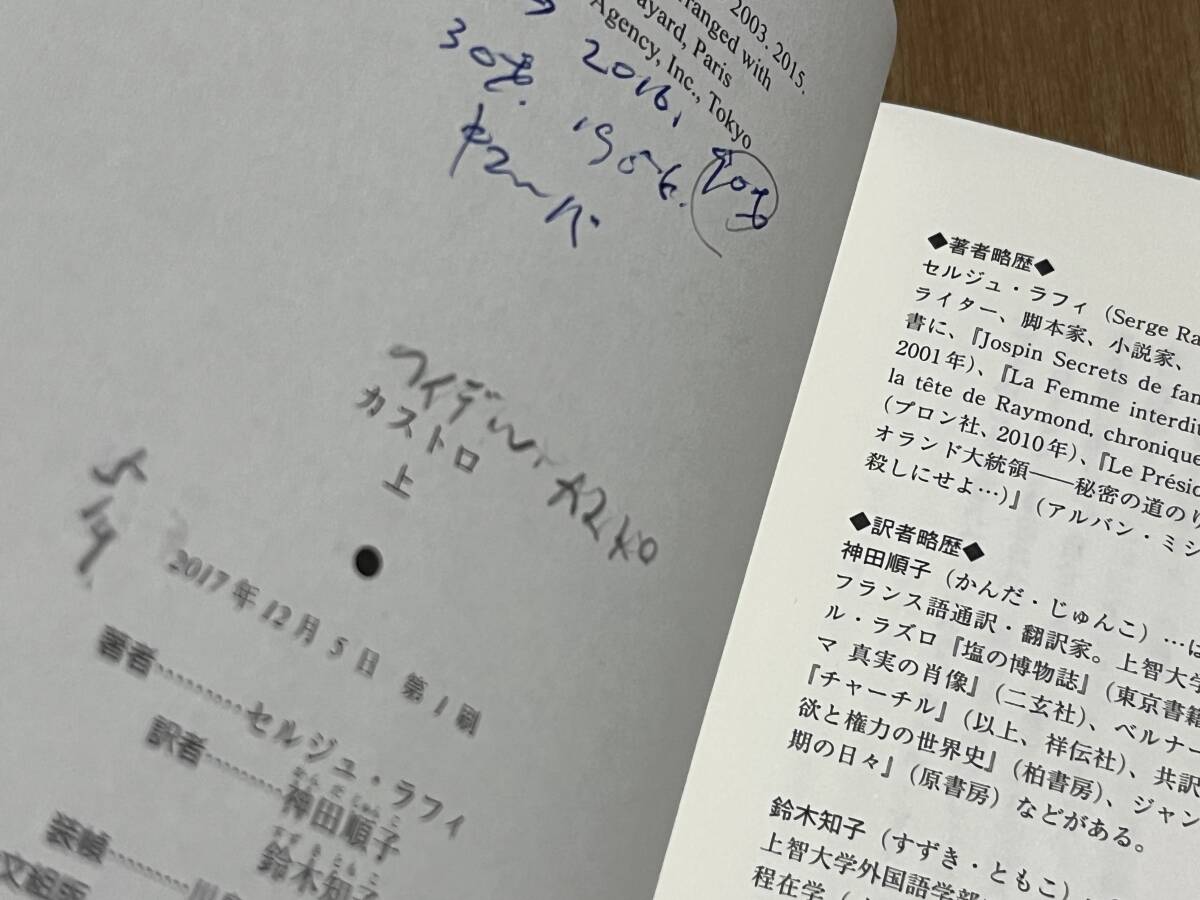 2003. 2015.
ranged with
ayard, Paris
Agency, Inc., Tokyo
2016.
30
1956.
キューバ
フィデル・カストロ
カストロ
上
2017年12月5日 第1刷
著者………セルジュ・ラフィ
訳者………神田順子
かんだじゅんこ
鈴木知子
すずきともこ
装幀………川島
文組版
◆著者略歴◆
セルジュ・ラフィ(Serge Ra
ライター、脚本家、小説家、
書に、『Jospin Secrets de fan
2001年)、『La Femme interdit
la tête de Raymond, chronique
(プロン社、2010年)、『Le Présid
オランド大統領――秘密の道のり
殺しにせよ…)』(アルバン・ミシ
◆訳者略歴◆
神田順子(かんだ・じゅんこ)…は
フランス語通訳・翻訳家。上智大学
ル・ラズロ『塩の博物誌』(東京書籍
マ 真実の肖像』(二玄社)、ベルナー
『チャーチル』(以上、祥伝社)、共訳
欲と権力の世界史』(柏書房)、ジャン
期の日々』(原書房)などがある。
鈴木知子(すずき・ともこ)
上智大学外国語学部
程在学(